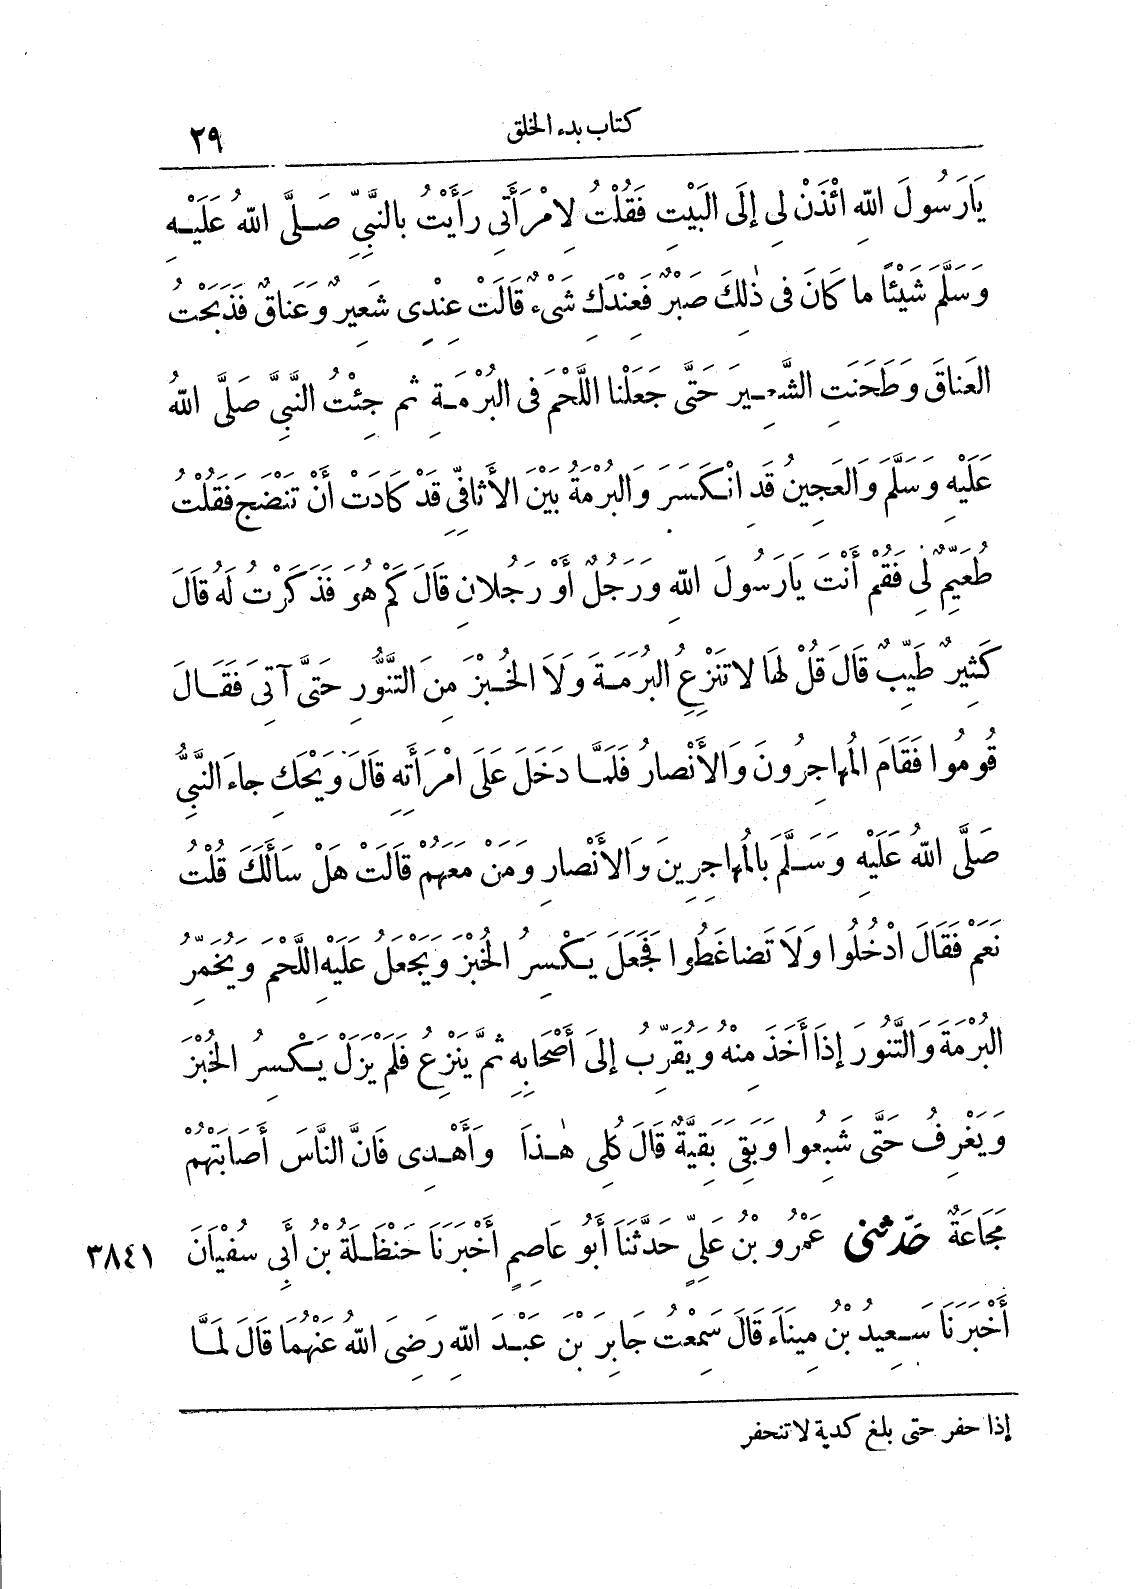 كتاب بدء الخلق
٢٩
يَارَسُولَ اللّٰهِ ائْذَنْ لِى إِلَى البَيْتِ فَقُلْتُ لِامْرَأَتِى رَأَيْتُ بِالنَّبِيِّ صَلَّى اللّٰهُ عَلَيْهِ
وَسَلَّمَ شَيْئًا ما كَانَ فى ذٰلِكَ صَبْرٌ فَعِنْدَكِ شَىْءٌ قَالَتْ عِنْدِى شَعِيرٌ وَعَنَاقٌ فَذَبَحْتُ
العَنَاقَ وَطَحَنَتِ الشَّعِيرَ حَتَّى جَعَلْنا اللَّحْمَ فى البُرْمَةِ ثم جِئْتُ النَّبِيَّ صَلَّى اللّٰهُ
عَلَيْهِ وَسَلَّمَ وَالعَجِينُ قَدِ انْكَسَرَ وَالبُرْمَةُ بَيْنَ الأَثافِيِّ قَدْ كَادَتْ أَنْ تَنْضَجَ فَقُلْتُ
طُعَيِّمٌ لِى فَقُمْ أَنْتَ يَارَسُولَ اللّٰهِ وَرَجُلٌ أَوْ رَجُلانِ قَالَ كَمْ هُوَ فَذَكَرْتُ لَهُ قَالَ
كَثِيرٌ طَيِّبٌ قَالَ قُلْ لهَا لا تَنْزِعِ البُرْمَةَ وَلَا الخُبْزَ مِنَ التَّنُّورِ حَتَّى آتِىَ فَقَالَ
قُومُوا فَقَامَ المُهاجِرُونَ وَالأَنْصارُ فَلَمَّا دَخَلَ عَلَى امْرَأَتِهِ قَالَ وَيْحَكِ جاءَ النَّبِيُّ
صَلَّى اللّٰهُ عَلَيْهِ وَسَلَّمَ بَالمُهاجِرِينَ وَالأَنْصارِ وَمَنْ مَعَهُمْ قَالَتْ هَلْ سَأَلَكَ قُلْتُ
نَعَمْ فَقَالَ ادْخُلُوا وَلَا تَضاغَطُوا فَجَعَلَ يَكْسِرُ الخُبْزَ وَيَجْعَلُ عَلَيْهِ اللَّحْمَ وَيُخَمِّرُ
البُرْمَةَ وَالتَّنُورَ إِذَا أَخَذَ مِنْهُ وَيُقَرِّبُ إِلَى أَصْحَابِهِ ثمَّ يَنْزِعُ فَلَمْ يَزَلْ يَكْسِرُ الخُبْزَ
وَيَغْرِفُ حَتَّى شَبِعُوا وَبَقِىَ بَقِيَّةٌ قَالَ كُلِى هٰذَا وَأَهْدِى فَانَّ النَّاسَ أَصَابَتْهُمْ
مَجَاعَةٌ حَدَّثَنِى عَمْرُو بْنُ عَلِيٍّ حَدَّثَنَا أَبُو عَاصِمٍ أَخْبَرَنَا حَنْظَلَةُ بْنُ أَبِى سُفْيَانَ
٣٨٤١
أَخْبَرَنَا سَعِيدُ بْنُ مِينَاءَ قَالَ سَمِعْتُ جَابِرَ بْنَ عَبْدِ اللّٰهِ رَضِىَ اللّٰهُ عَنْهُمَا قَالَ لَمَّا
إذا حفر حتى بلغ كدية لا تنحفر